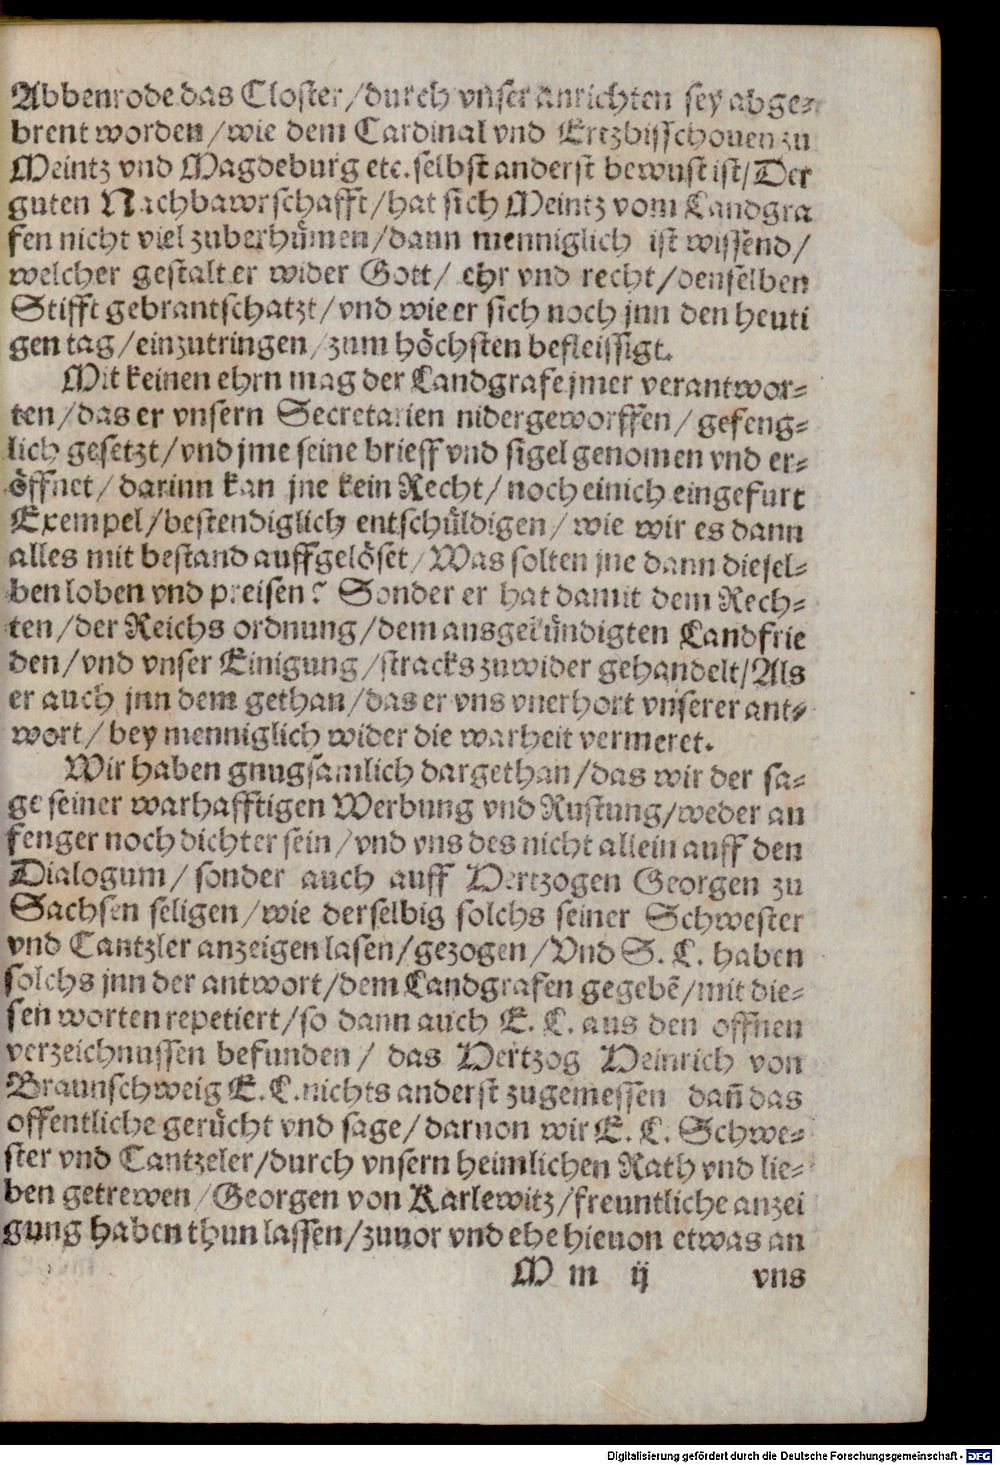 Abbenrode das Closter/durch vnser anrichten sey abge-
brent worden/wie dem Cardinal vnd Ertzbisschouen zu
Meintz vnd Magdeburg etc. selbst anderst bewust ist/Der
guten Nachbawrschafft/hat sich Meintz vom Landgra
fen nicht viel zuberhůmen/dann menniglich ist wissend/
welcher gestalt er wider Gott/ ehr vnd recht/denselben
Stifft gebrantschatzt/vnd wie er sich noch jnn den heuti
gen tag/einzutringen/zum hőchsten befleissigt.
Mit keinen ehrn mag der Landgrafe jmer verantwor-
ten/das er vnsern Secretarien nidergeworffen/ gefeng-
lich gesetzt/vnd jme seine brieff vnd sigel genomen vnd er-
őffnet/ darinn kan jne kein Recht/ noch einich eingefurt
Exempel/bestendiglich entschůldigen/ wie wir es dann
alles mit bestand auffgelőset/Was solten jne dann diesel-
ben loben vnd preisen? Sonder er hat damit dem Rech-
ten/der Reichs ordnung/dem ausgekůndigten Landfrie
den/vnd vnser Einigung/stracks zuwider gehandelt/Als
er auch jnn dem gethan/das er vns vnerhort vnserer ant-
wort/ bey menniglich wider die warheit vermeret.
Wir haben gnugsamlich dargethan/das wir der sa-
ge seiner warhafftigen Werbung vnd Rustung/weder an
fenger noch dichter sein/vnd vns des nicht allein auff den
Dialogum/ sonder auch auff Hertzogen Georgen zu
Sachsen seligen/wie derselbig solchs seiner Schwester
vnd Cantzler anzeigen lasen/gezogen/Vnd S. L. haben
solchs jnn der antwort/dem Landgrafen gegebẽ/mit die-
sen worten repetiert/so dann auch E. L. aus den offnen
verzeichnussen befunden/ das Hertzog Heinrich von
Braunschweig E. L. nichts anderst zugemessen dañ das
offentliche gerůcht vnd sage/ daruon wir E. L. Schwe-
ster vnd Cantzeler/durch vnsern heimlichen Rath vnd lie-
ben getrewen/Georgen von Karlewitz/freuntliche anzei
gung haben thun lassen/zuuor vnd ehe hieuon etwas an
M m ij vns
Digitalisierung gefördert durch die Deutsche Forschungsgemeinschaft - DFG